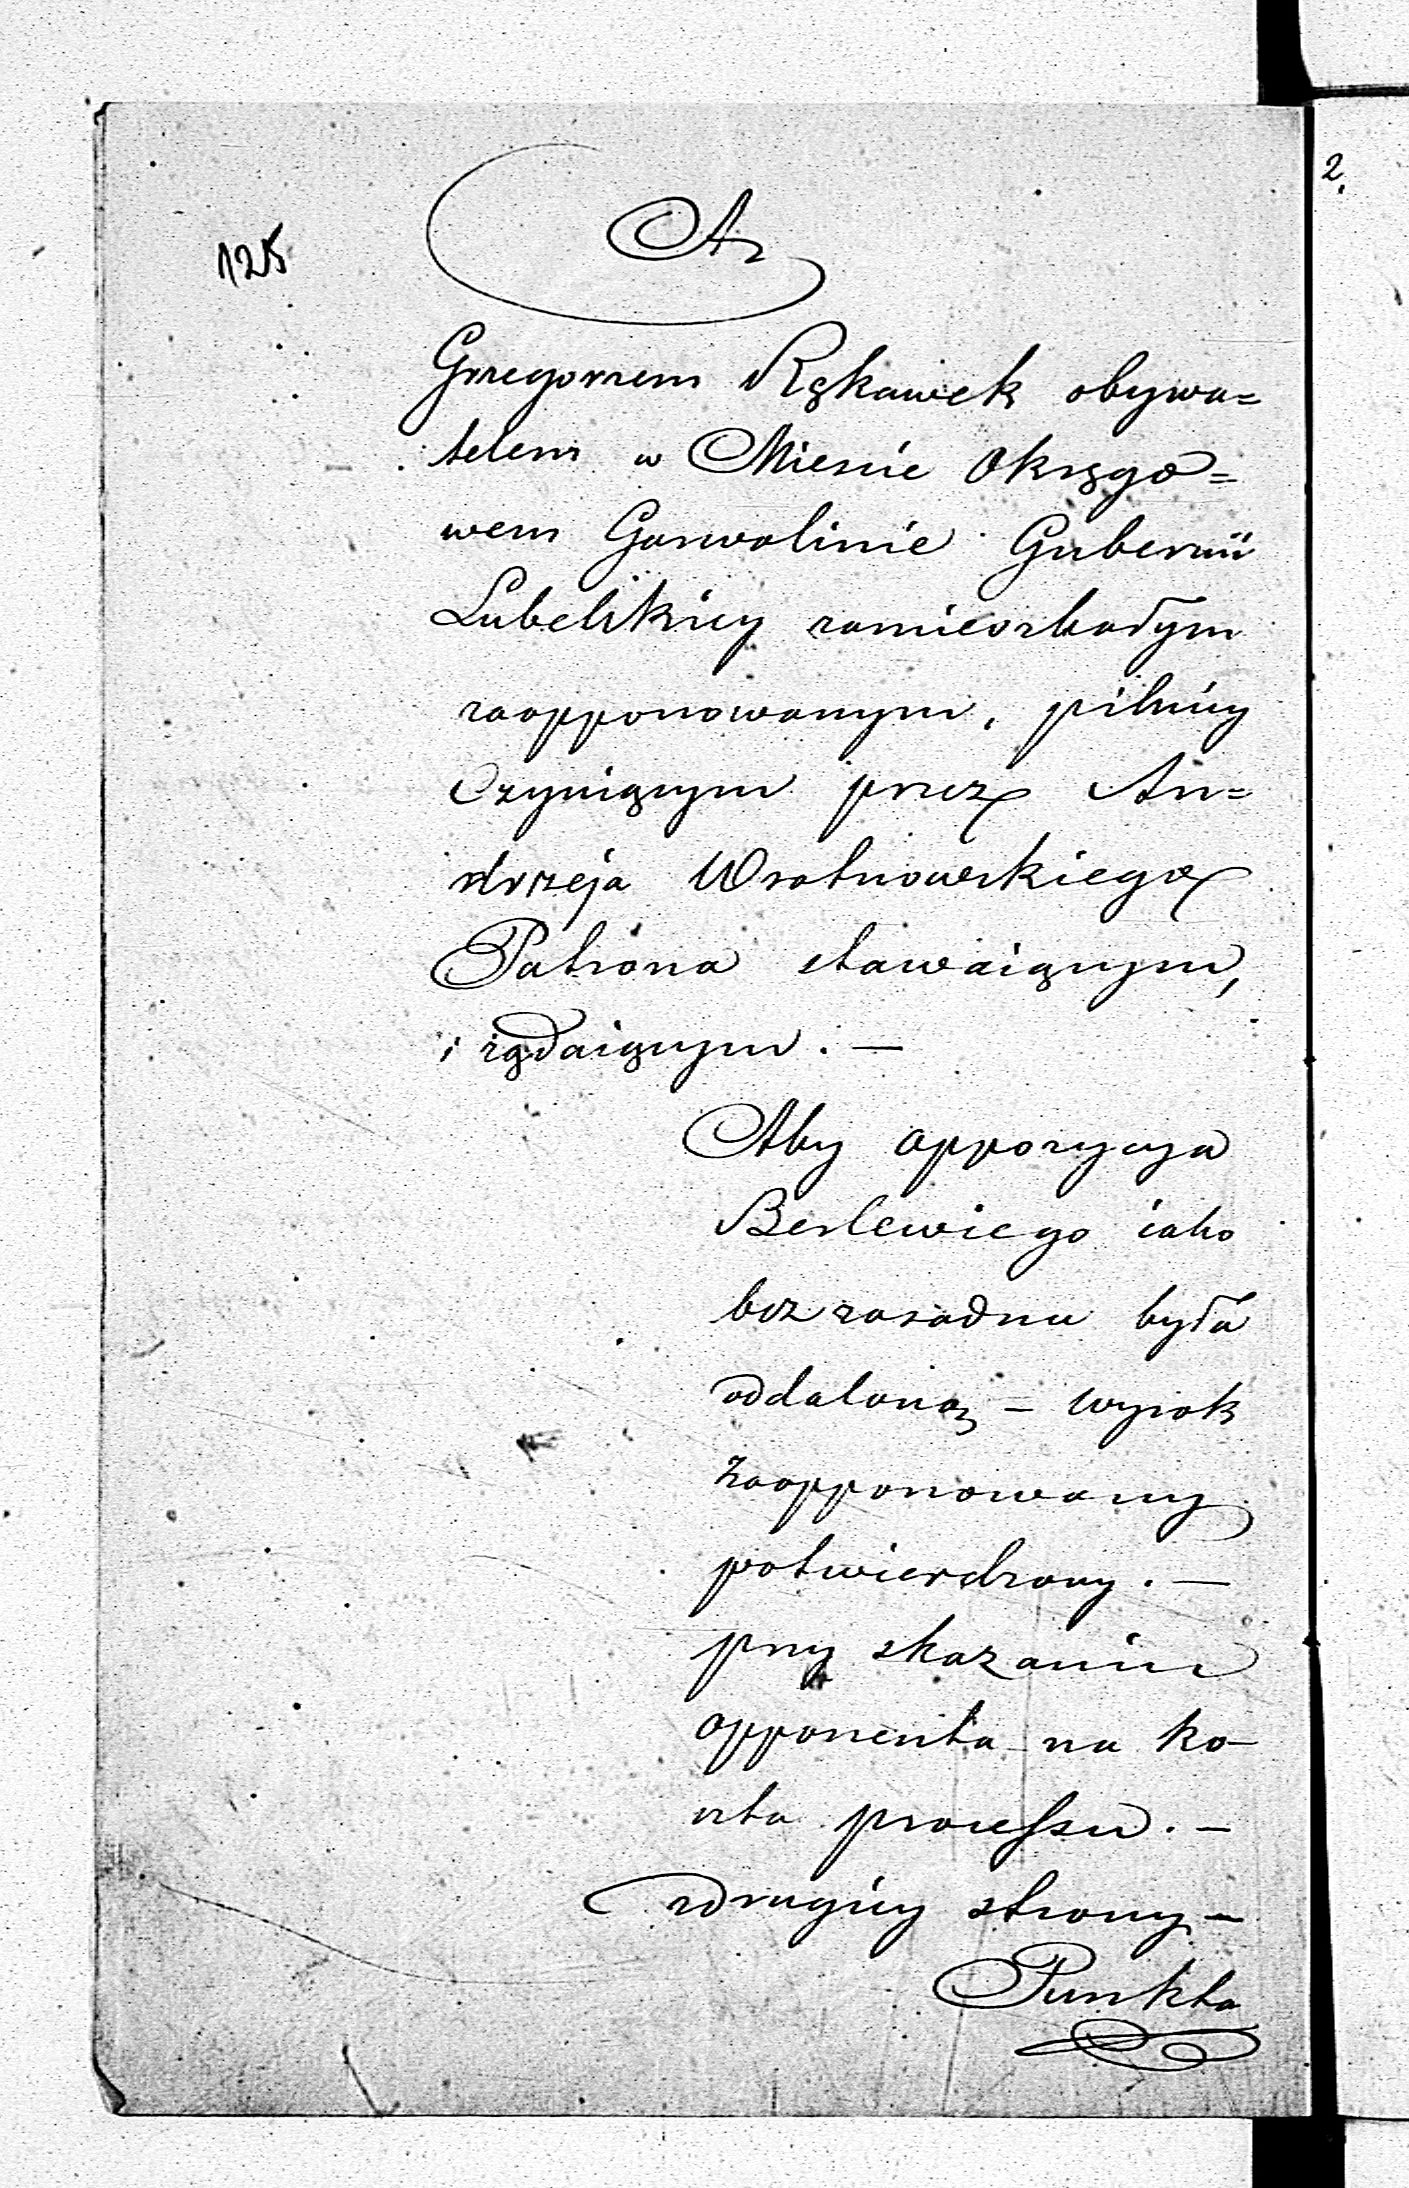 2.
125
A
Grzegorzem Rękawek obywa=
telem w Mieście Okręgo=
wem Garwolinie Gubernii
Lubelskiey zamieszkałym
zaopponowanym, pilniey
Czyniącym przez An=
drzeja Wrotnowskiego
Patrona stawaiącym,
i żądaiącym. —
Aby oppozycya
Berlewiego iako
bezzasadna była
oddaloną – wyrok
zaopponowany
potwierdzony. —
przy skazaniu
opponenta na ko–
szta processu. —
z drugiey strony –
Punkta